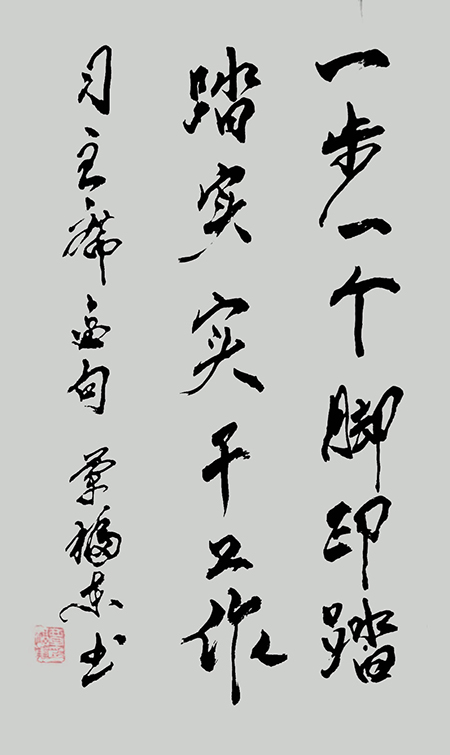 一步一个脚印踏
踏实实干工作
习主席金句 书